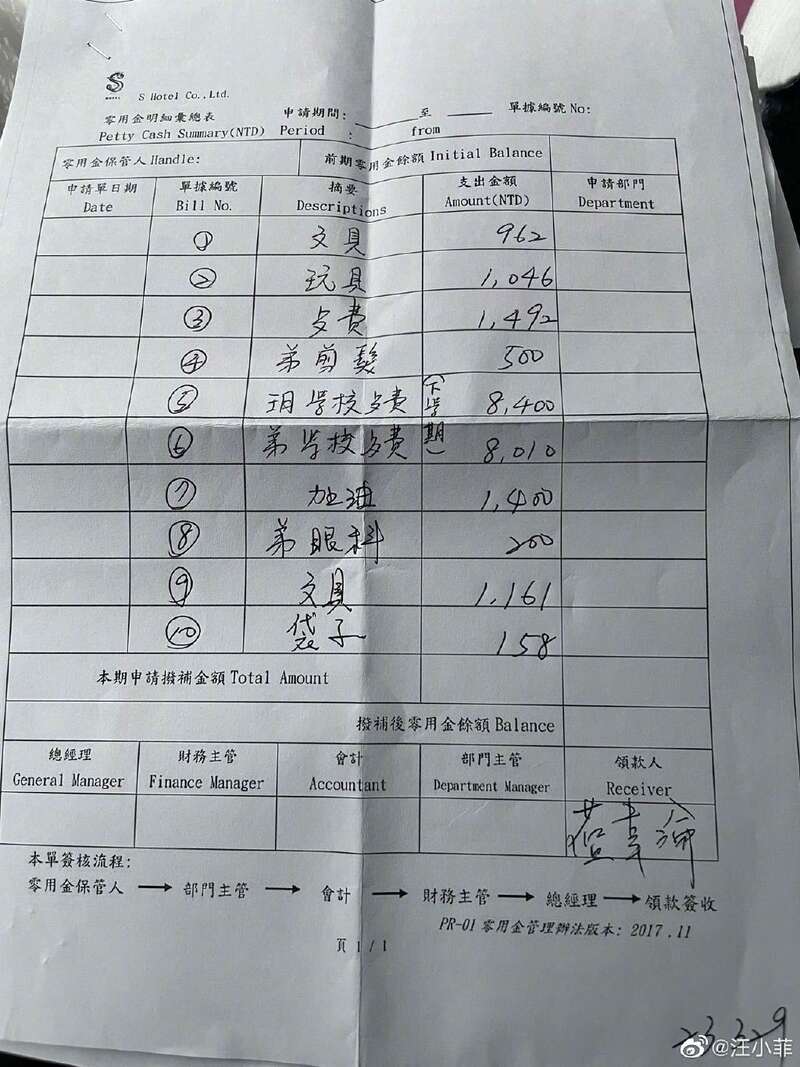 S
S Hotel Co.,Ltd.
零用金明細彙總表 申請期間: 至 單據編號 No:
Petty Cash Summary(NTD) Period : from
零用金保管人 Handle: 前期零用金餘額 Initial Balance
申請單日期 單據編號 摘要 支出金額 申請部門
Date Bill No. Descriptions Amount(NTD) Department
① 文具 962
② 玩具 1,046
③ 歺費 1,492
④ 弟剪髮 500
⑤ 玥学校歺費 (下学期) 8,400
⑥ 弟学校歺費 8,010
⑦ 加油 1,400
⑧ 弟眼科 200
⑨ 文具 1,161
⑩ 袋子 158
本期申請撥補金額 Total Amount
撥補後零用金餘額 Balance
總經理 財務主管 會計 部門主管 領款人
General Manager Finance Manager Accountant Department Manager Receiver
本單簽核流程:
零用金保管人 → 部門主管 → 會計 → 財務主管 → 總經理 → 領款簽收
PR-01 零用金管理辦法版本: 2017.11
頁 1 / 1
@汪小菲